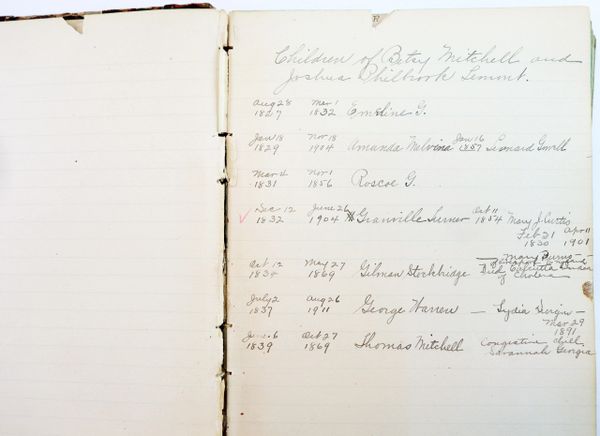 Children of Betsy Mitchell and
Joshua Philbrook Lemont.
Aug 28 1827 Mar 1 1832 Emeline G.
Jan 18 1829 Nov 18 1904 Amanda Melvina Jan 16 1857 Leonard
Mar 4 1831 Nov 1 1856 Roscoe G.
✓ Dec 12 1832 June 26 1904 Granville Turner Oct 11 1854 Mary J. Curtis
Feb 21 1830 Apr 11 1901
Oct 12 1834 May 27 1869 Gilman Stockbridge — Mary
Died Calcutta
of Cholera
July 2 1837 Aug 26 1911 George Warren — Lydia —
Mar 29 1891
June 6 1839 Oct 27 1869 Thomas Mitchell Congestive chill
Savannah Georgia